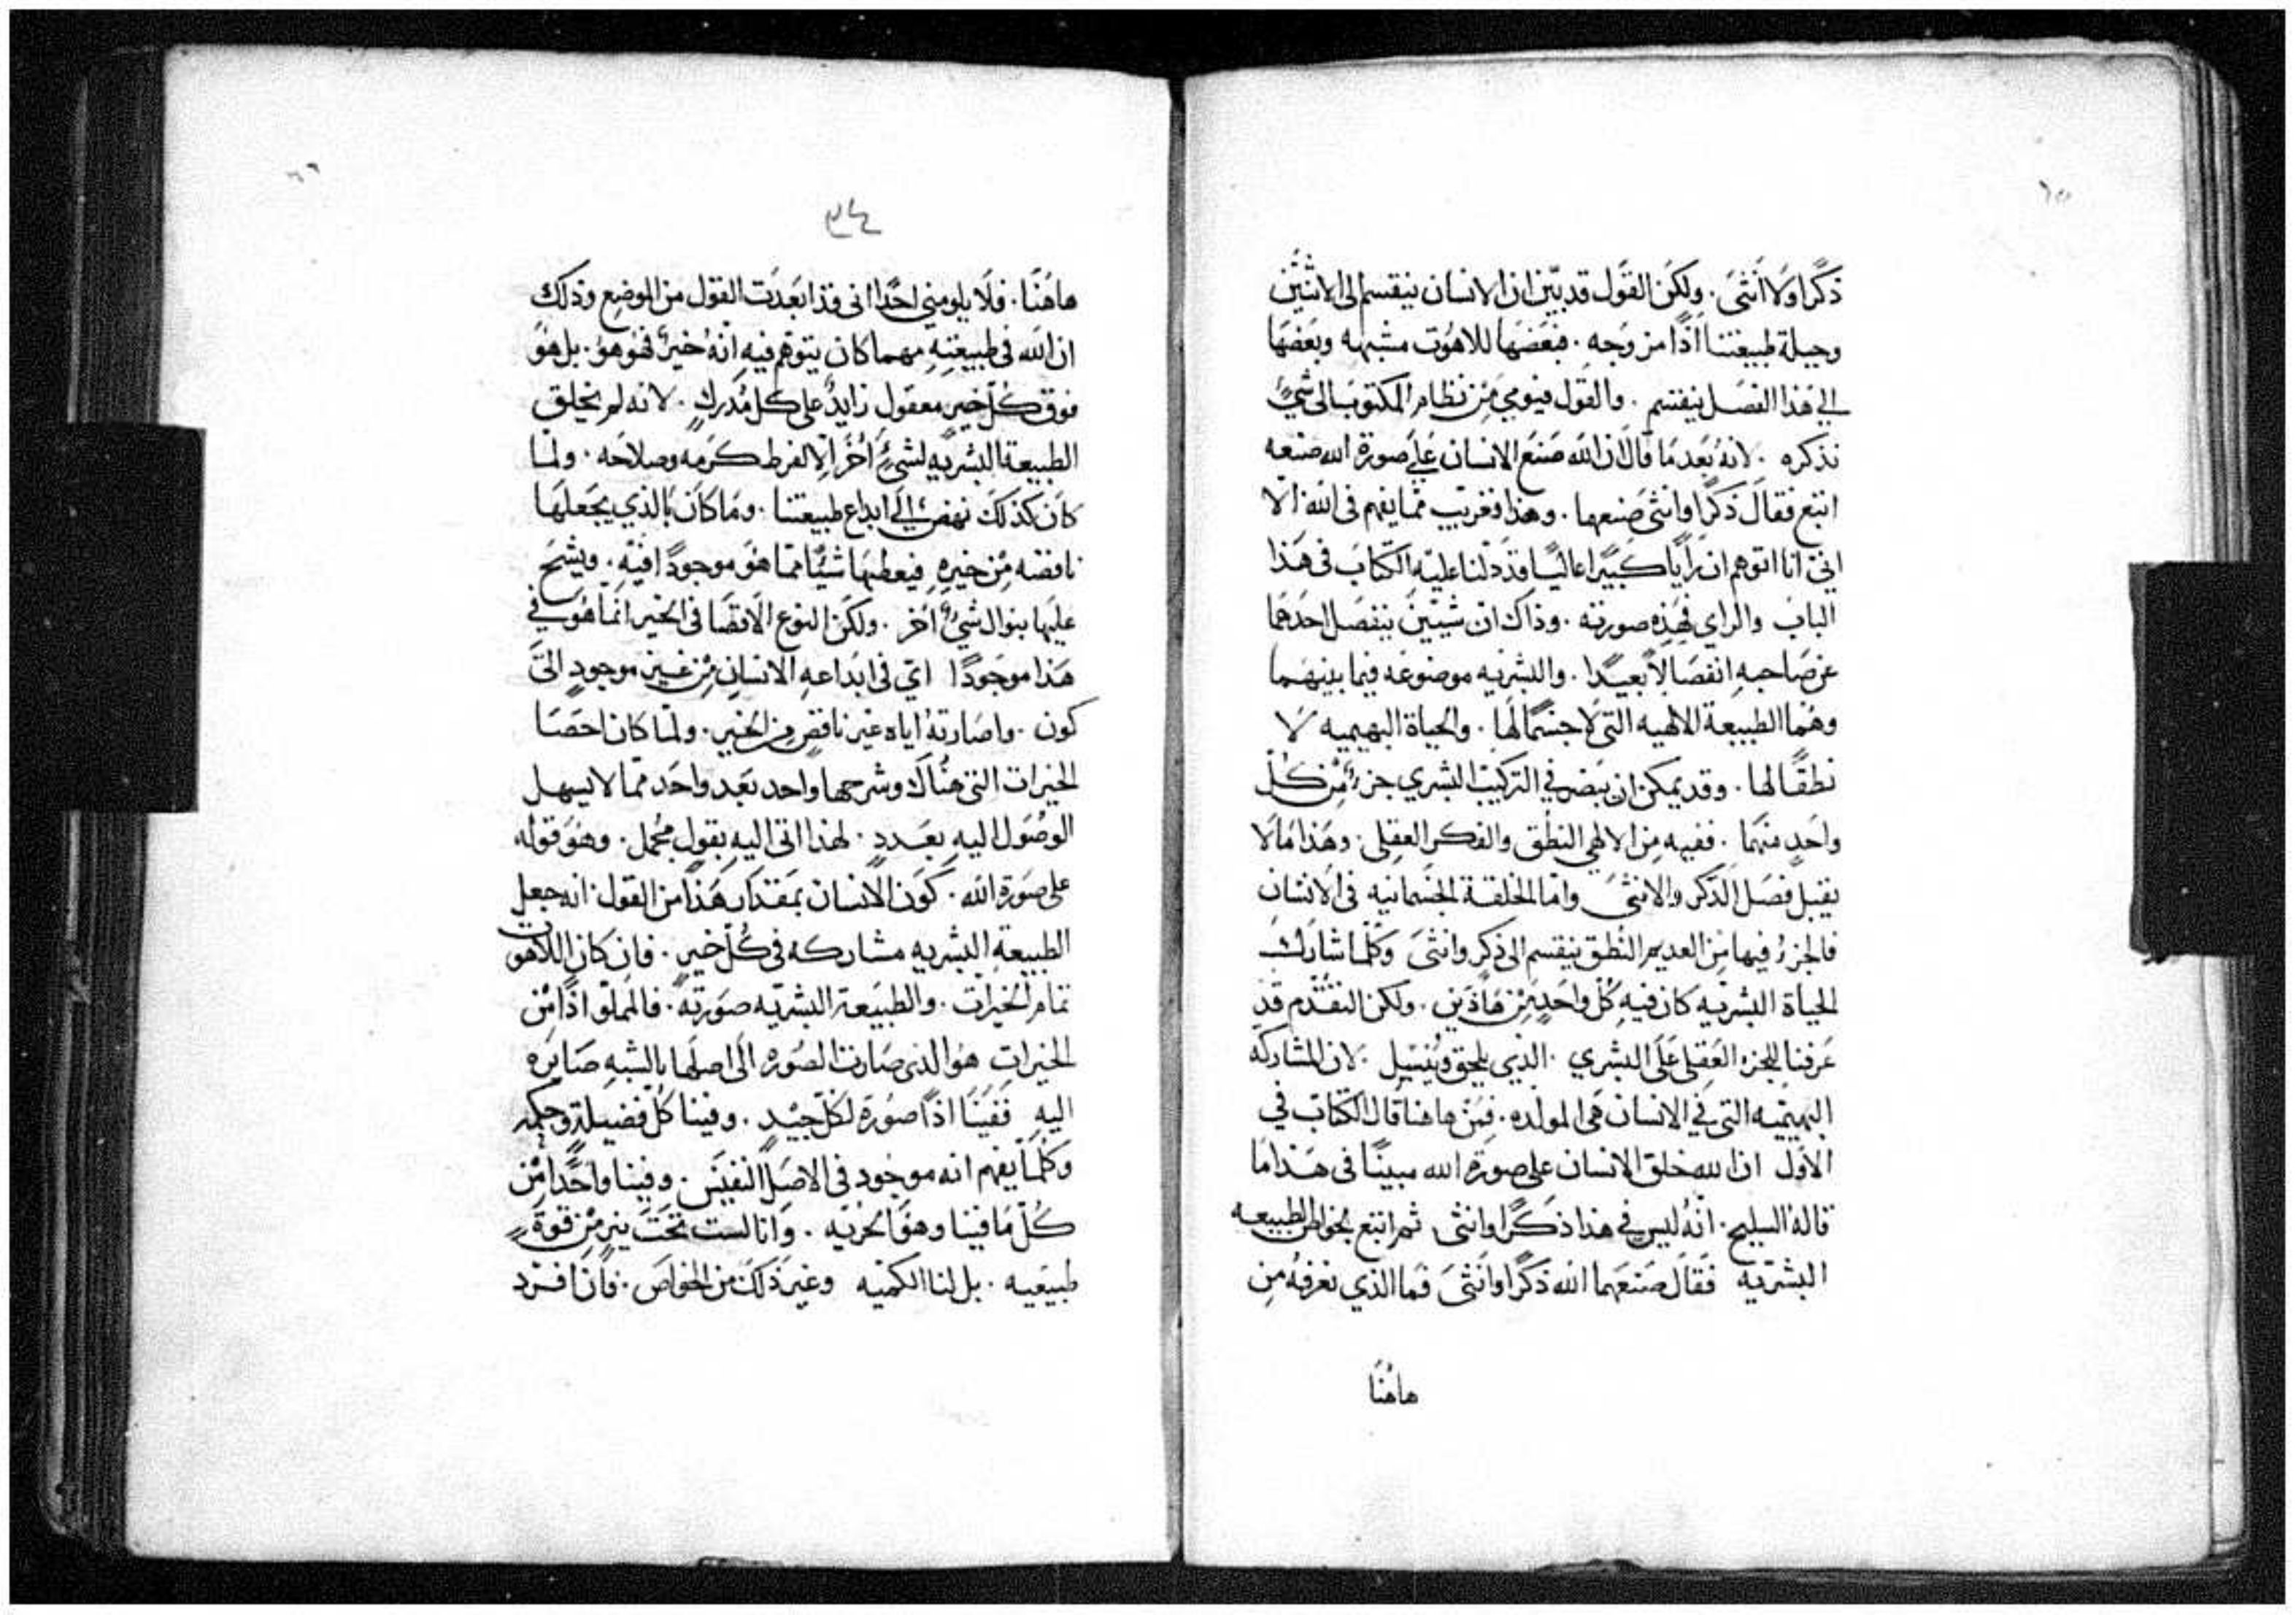 ٦٥
ذكرًا ولا انثى . ولكن القول قد بيّن ان الانسان ينقسم الى الاثنين
وجبلة طبيعتنا اذًا من وجه . فبعضها للاهوت مشبهه وبعضها
الى هذا الفصل ينقسم . والقول فيومي من نظام المكتوب الى شيٍ
نذكره . لانه بعد ما قال ان الله صنع الانسان على صورة الله صنعه
اتبع فقال ذكرًا وانثى صنعهما . وهذا فغريب مما يفهم فى الله الا
انى انا اتوهم ان رأيًا كبيرًا عاليًا قد دلنا عليه الكتاب فى هذا
الباب والراي فهذه صورته . وذاك ان شيئين ينفصل احدهما
عن صاحبه انفصالاً بعيدًا . والبشريه موضوعه فيما بينهما
وهما الطبيعة الالهيه التى لا جسمًا لها . والحياة البهيميه لا
نطقًا لها . وقد يمكن ان ببصر في التركيب البشري جزءٌ من كل
واحد منهما . ففيه من الالهي النطق والفكر العقلى . وهذا ما لا
يقبل فصل الذكر والانثى واما الخلقة الجسمانيه فى الانسان
فالجزء فيها من العديم النطق ينقسم الى ذكر وانثى وكلما شارك
الحياة البشريه كان فيه كل واحد من هاذين . ولكن التقدم قد
عرفنا للجزء العقلى على البشري . الذي يلحق وينسل . لان المشاركه
البهيميه التى في الانسان هى المولده . فمن هاهنا قال الكتاب في
الاول ان الله خلق الانسان على صورة الله مبينًا فى هذا ما
قاله السليح . انه ليس في هذا ذكرًا وانثى ثم اتبع بخواص الطبيعه
البشريه فقال صنعهما الله ذكرًا وانثى فما الذي نعرفه من
هاهنا
٦٦
٣٤
هاهنا . فلا يلومني احدًا انى قد ابعدت القول من الموضع وذلك
ان الله فى طبيعته مهما كان يتوهم فيه انه خيرٌ فهو هو . بل هو
فوق كل خير معقول زايدٌ على كل مدرك . لانه لم يخلق
الطبيعة البشريه لشيٍ أخر الا لفرط كرمه وصلاحه . ولما
كان كذلك نهض الى ابداع طبيعتنا . وما كان بالذي يجعلها
ناقصه من خيره فيعطيها شيًا مما هو موجودًا فيه . ويشح
عليها بنوال شيٍ أخر . ولكن النوع الاقصا فى الخير انما هو في
هذا موجودًا اي فى ابداعه الانسان من غير موجود الى
كون . واصارته اياه غير ناقص من الخير . ولما كان احصا
الخيرات التى هناك وشرحها واحد بعد واحد مما لا يسهل
الوصول اليه بعدد . لهذا اتى اليه بقول مجمل . وهو قوله
على صورة الله . كون الانسان بمقدار هذا من القول انه جعل
الطبيعة البشريه مشاركه فى كل خير . فان كان اللاهوت
تمام الخيرات . والطبيعة البشريه صورته . فالمملو اذًا من
الخيرات هو الذى صارت الصوره الى اصلها بالشبه صايره
اليه ففينا اذًا صورة لكل جيد . وفينا كل فضيلة وحكمه
وكلما يفهم انه موجود فى الاصل النفيس . وفينا واحدًا من
كل ما فينا وهو الحريه . وانا لست تحت نير من قوة
طبيعيه . بل لنا الكميه وغير ذلك من الخواص . فان افرد